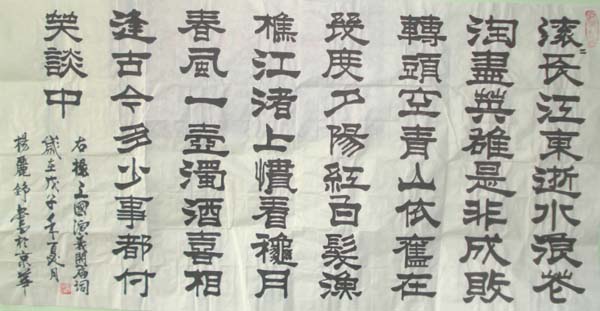 滚〻長江東逝水浪花
淘盡英雄是非成敗
轉頭空青山依舊在
幾度夕陽紅白髮漁
樵江渚上慣看穐月
春風一壺濁酒喜相
逢古今多少事都付
笑談中
右錄三國演義開篇詞
歲在戊子年夏月
楊麗舒書於京華